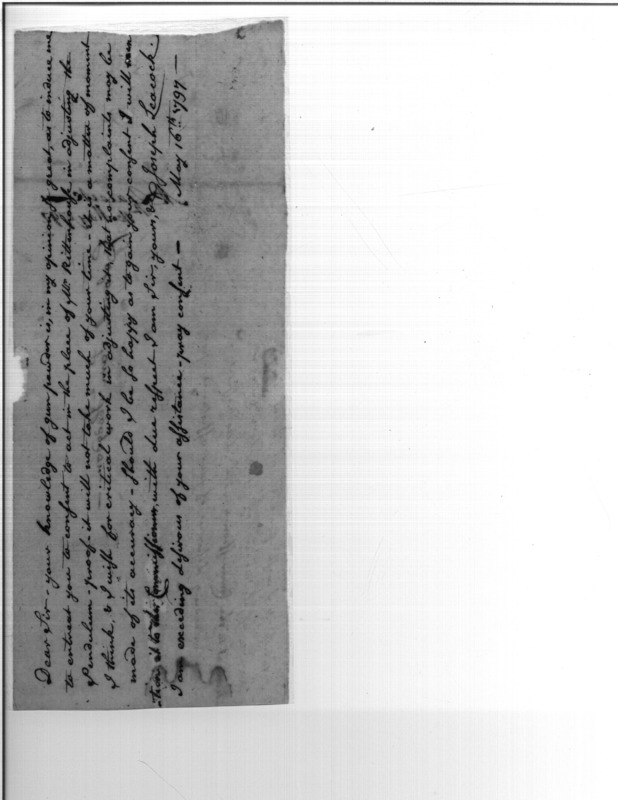 Dear Sir - your knowledge of gun powder is, in my opinion, so great, as to induce me
to entreat you to consent to act in the place of Mr. Rittenhouse in adjusting the
Pendulum - proof. it will not take much of your time - It is a matter of moment
I think, & I wish for critical work in adjusting it, that no complaints may be
made of its accuracy - Should I be so happy as to gain your consent I will men
tion it to the Commissioners, with due respect I am Sir, yours, &c Joseph Leacock.
I am exceeding desirous of your assistance - pray consent - May 16th 1797 -